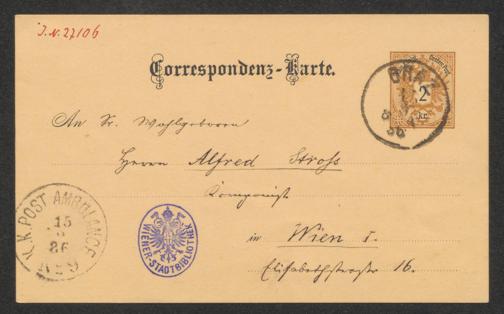 I.N. 27106
Correspondenz-Karte.
2 kr.
GRAZ
86
An Sr. Wohlgeboren
Herrn Alfred Stross
Componist
in Wien I.
Elisabethstrasse 16.
K.K. POST AMBULANCE
15
86
No 9
WIENER-STADTBIBLIOTHEK